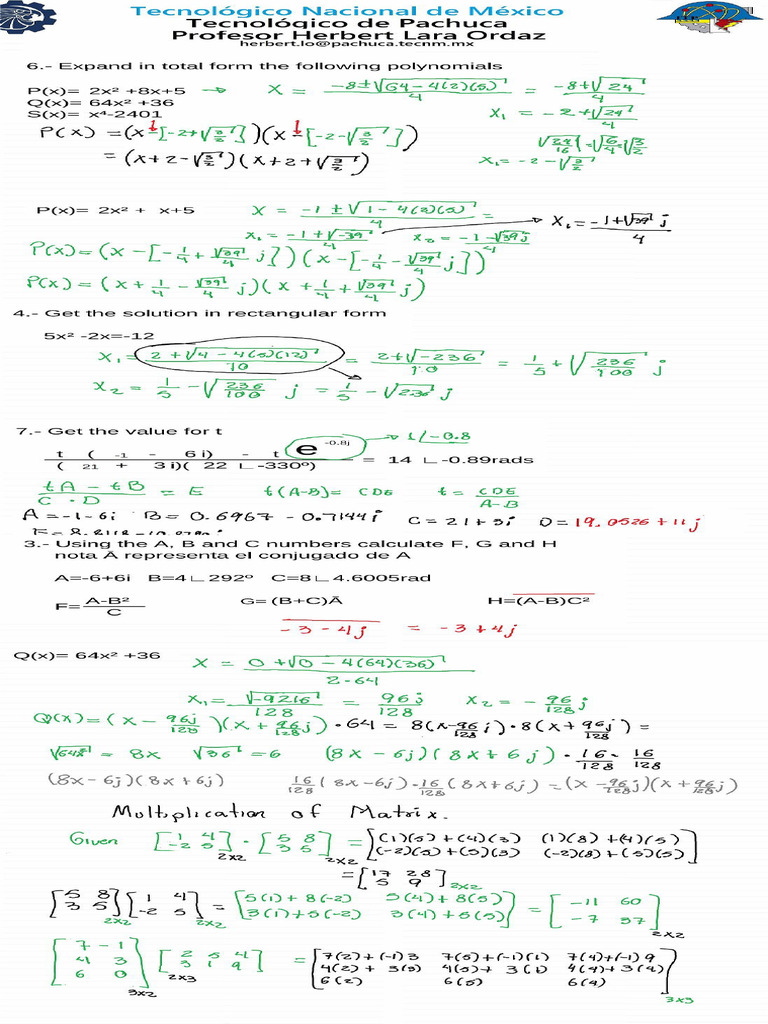 Tecnológico Nacional de México
Tecnológico de Pachuca
Profesor Herbert Lara Ordaz
herbert.lo@pachuca.tecnm.mx
6.- Expand in total form the following polynomials
P(x)= 2x² +8x+5 → X = (-8±√(64-4(2)(5)))/4 = (-8+√24)/4
Q(x)= 64x² +36
S(x)= x⁴-2401 X₁ = -2+√24/4
P(x) = (x-[-2+√(3/2)])(x-[-2-√(3/2)]) √(24/16) = √(6/4) = √(3/2)
= (x+2-√(3/2))(x+2+√(3/2)) X₁ = -2-√(3/2)
P(x)= 2x² + x+5 X = (-1±√(1-4(2)(5)))/4 =
X₁ = (-1+√-39)/4 X₂ = (-1-√39j)/4 → X₁ = (-1+√39 j)/4
P(x)=(x-[-1/4+√39/4 j])(x-[-1/4-√39/4 j])
P(x)=(x+1/4-√39/4 j)(x+1/4+√39/4 j)
4.- Get the solution in rectangular form
5x² -2x=-12
X₁ = (2+√(4-4(5)(12)))/10 = (2+√-236)/10 = 1/5+√(236/100) j
X₂ = 1/5-√(236/100) j = 1/5-√2.36 j
7.- Get the value for t
e^-0.8j → 1∠-0.8
t ( -1 - 6 i) - t
( 21 + 3 i)( 22 ∟-330º) = 14 ∟-0.89rads
(tA-tB)/(C·D) = E t(A-B)= CDE t = CDE/(A-B)
A=-1-6i B=0.6967-0.7144i C=21+3i D=19.0526+11j
3.- Using the A, B and C numbers calculate F, G and H
nota Ā representa el conjugado de A
A=-6+6i B=4∟292º C=8∟4.6005rad
F= (A-B²)/C G= (B+C)Ā H=(A-B)C²
-3-4j = -3+4j
Q(x)= 64x² +36 X = (0+√(0-4(64)(36)))/(2·64)
X₁ = √-9216/128 = 96j/128 X₂ = -96/128 j
Q(x)=(x-96j/128)(x+96j/128)·64 = 8(x-96/128 j)·8(x+96/128 j) =
√64x² = 8x √36 = 6 (8x-6j)(8x+6j)·16/128·16/128
(8x-6j)(8x+6j) 16/128(8x-6j)·16/128(8x+6j) = (x-96/128 j)(x+96/128 j)
Multiplication of Matrix.
Given [1 4; -2 5]2x2 · [5 8; 3 5]2x2 = [(1)(5)+(4)(3) (1)(8)+(4)(5); (-2)(5)+(5)(3) (-2)(8)+(5)(5)]
= [17 28; 5 9]2x2
[5 8; 3 5]2x2 [1 4; -2 5]2x2 = [5(1)+8(-2) 5(4)+8(5); 3(1)+5(-2) 3(4)+5(5)] = [-11 60; -7 37]2x2
[7 -1; 4 3; 6 0]3x2 [2 5 4; 3 1 9]2x3 = [7(2)+(-1)3 7(5)+(-1)(1) 7(4)+(-1)9; 4(2)+3(3) 4(5)+3(1) 4(4)+3(9); 6(2) 6(5) 6(4)]3x3